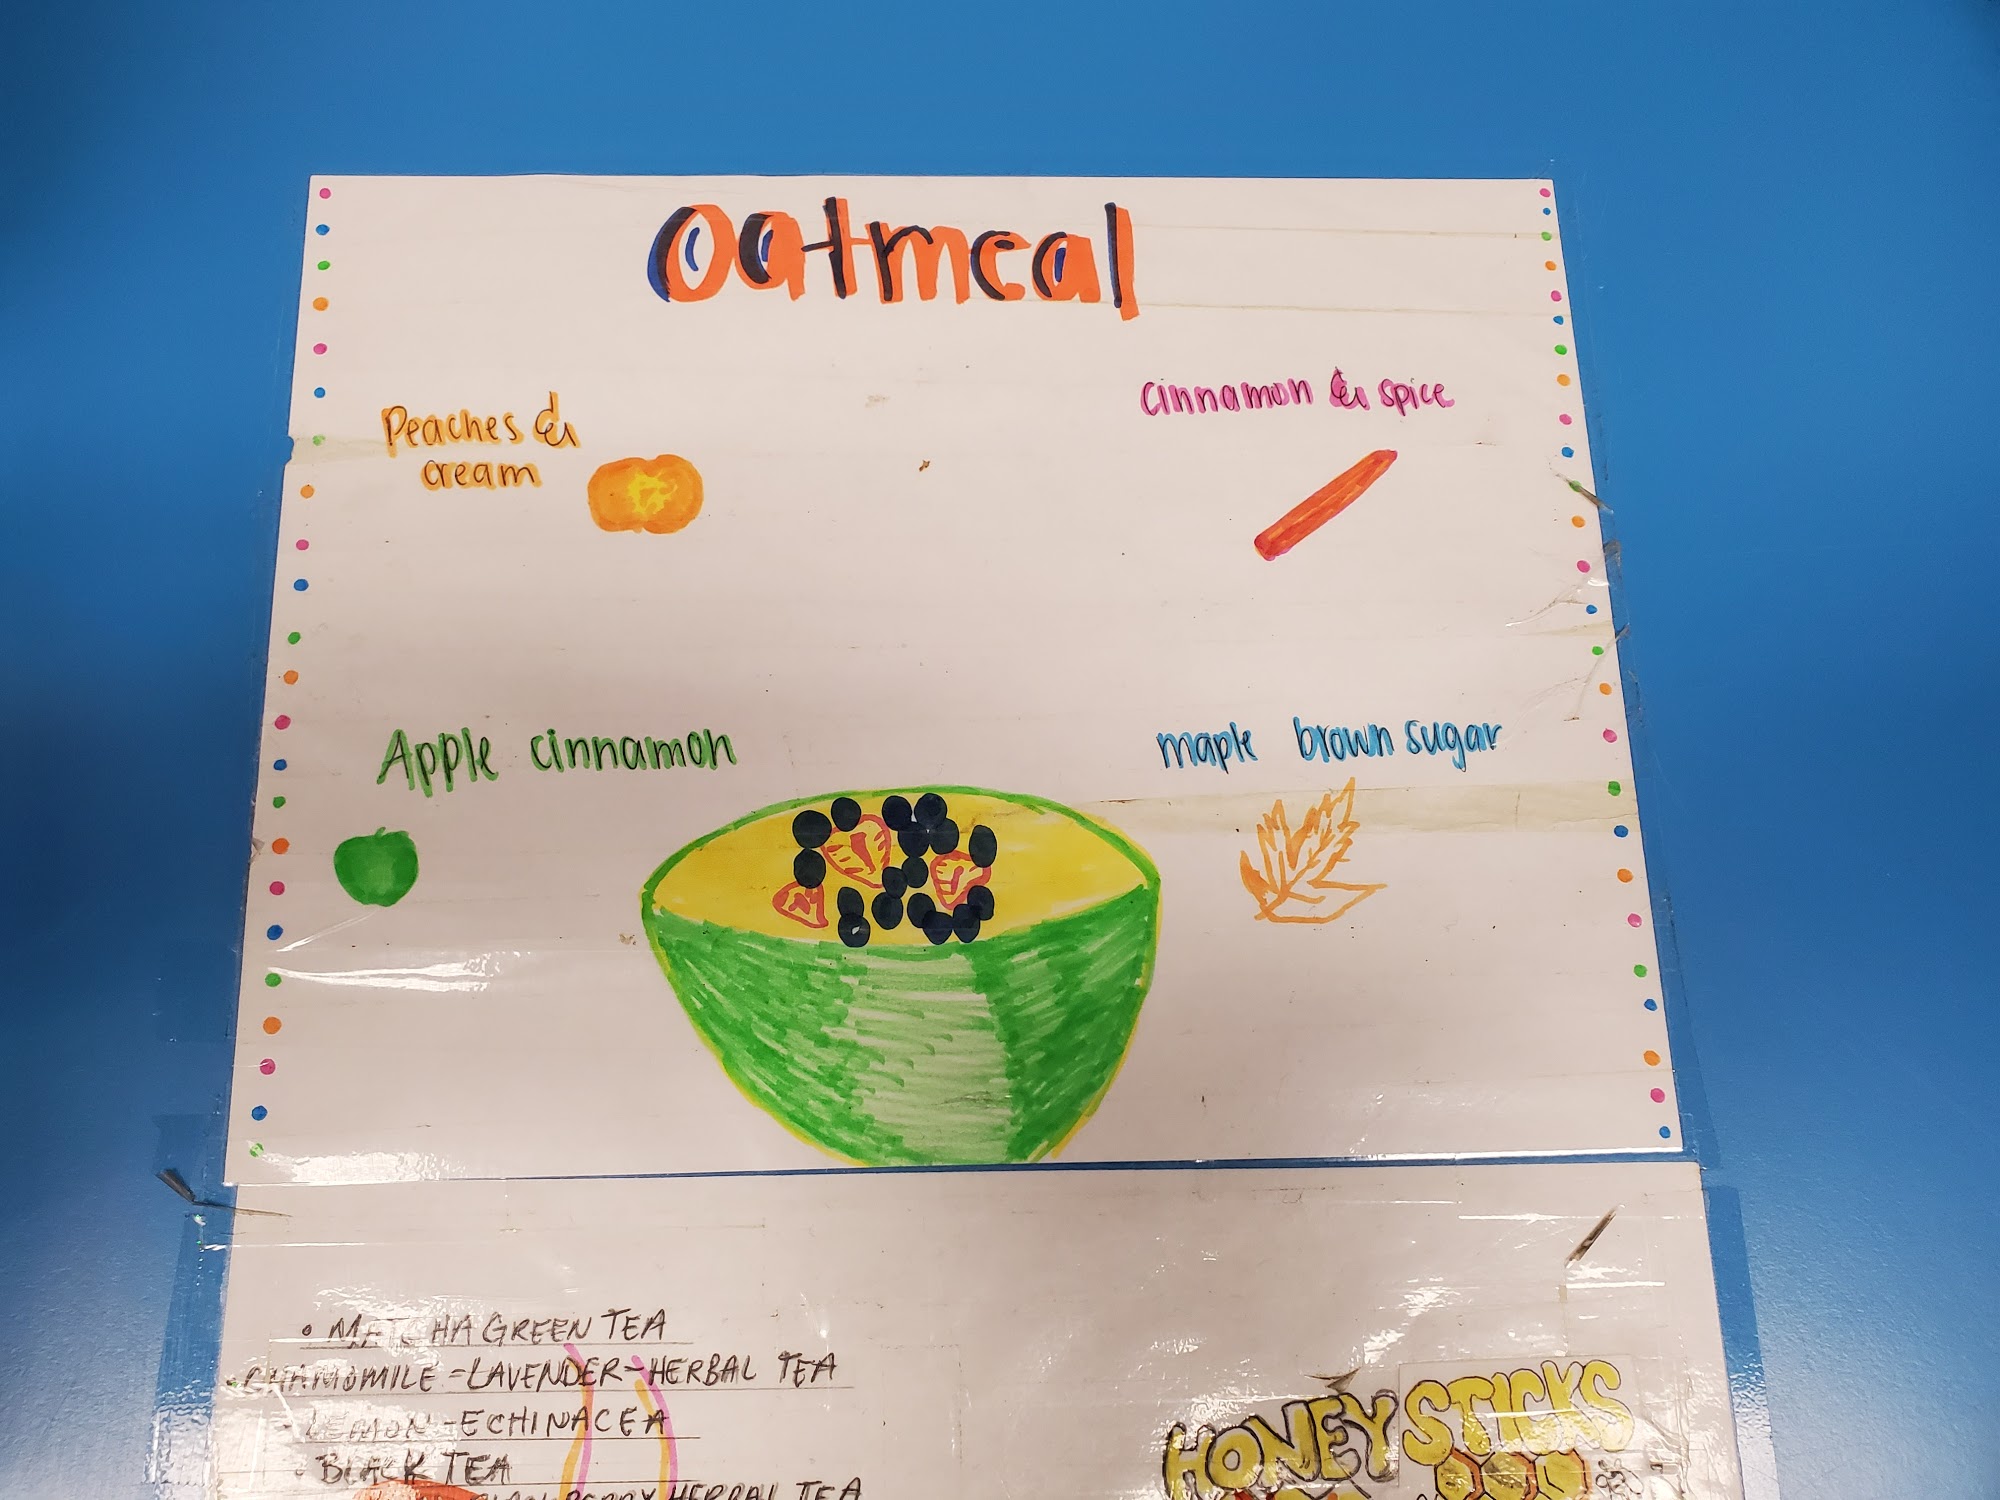 Oatmeal
Peaches &
cream
cinnamon & spice
Apple cinnamon
maple brown sugar
• MATCHA GREEN TEA
• CHAMOMILE - LAVENDER - HERBAL TEA
- LEMON - ECHINACEA
• BLACK TEA
HERBAL TEA
HONEY STICKS